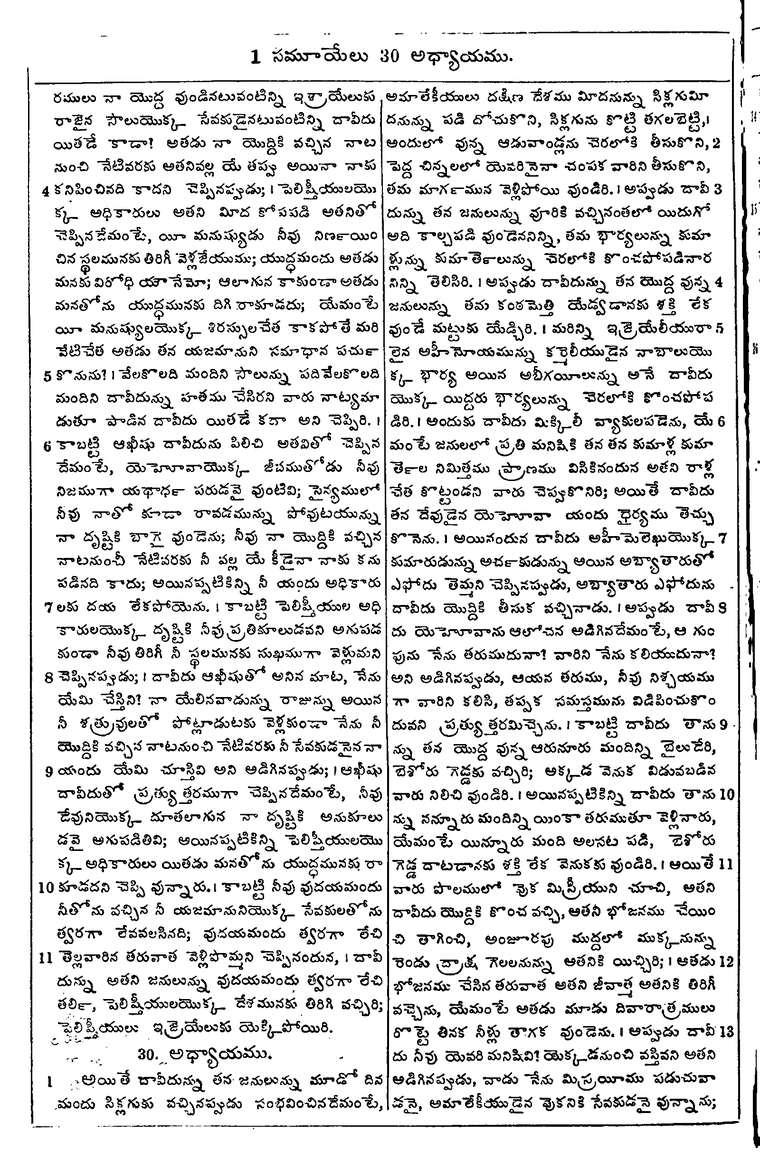 1 సమూయేలు 30 అధ్యాయము.
రములు నా యొద్ద వుండినటువంటిన్ని ఇశ్రాయేలుకు
రాజైన సౌలుయొక్క సేవకుడైనటువంటిన్ని దావీదు
యితడే కాడా? అతడు నా యొద్దికి వచ్చిన నాట
నుంచి నేటివరకు అతనివల్ల యే తప్పు అయినా నాకు
4 కనిపించినది కాదని చెప్పినప్పుడు; । పెలిష్తీయులయొ
క్క అధికారులు అతని మీద కోపపడి అతనితో
చెప్పినదేమంటే, యీ మనుష్యుడు నీవు నిర్ణయిం
చిన స్థలమునకు తిరిగీ వెళ్లజేయుము; యుద్ధమందు అతడు
మనకు విరోధి యౌనేమో; ఆలాగున కాకుండా అతడు
మనతోను యుద్ధమునకు దిగి రాకూడదు; యేమంటే
యీ మనుష్యులయొక్క శిరస్సులచేత కాకపోతే మరి
వేటిచేత అతడు తన యజమానుని సమాధాన పర్చు
5 కొనును? । వేలకొలది మందిని సౌలున్ను పదివేలకొలది
మందిని దావీదున్ను హతము చేసిరని వారు నాట్యమా
డుతూ పాడిన దావీదు యితడే కదా అని చెప్పిరి. ।
6 కాబట్టి ఆఖీషు దావీదును పిలిచి అతనితో చెప్పిన
దేమంటే, యెహోవాయొక్క జీవముతోడు నీవు
నిజముగా యథార్థ పరుడవై వుంటివి; సైన్యములో
నీవు నాతో కూడా రావడమున్ను పోవుటయున్ను
నా దృష్టికి బాగై వుండెను; నీవు నా యొద్దికి వచ్చిన
నాటనుంచీ నేటివరకు నీ వల్ల యే కీడైనా నాకు కను
పడినది కాదు; అయినప్పటికిన్ని నీ యందు అధికారు
7 లకు దయ లేకపోయెను. । కాబట్టి పెలిష్తీయుల అధి
కారులయొక్క దృష్టికి నీవు ప్రతికూలుడవని అగుపడ
కుండా నీవు తిరిగీ నీ స్థలమునకు సుఖముగా వెళ్లుమని
8 చెప్పినప్పుడు; । దావీదు ఆఖీషుతో అనిన మాట, నేను
యేమి చేస్తిని? నా యేలినవాడున్ను రాజున్ను అయిన
నీ శత్రువులతో పోట్లాడుటకు వెళ్లకుండా నేను నీ
యొద్దికి వచ్చిన నాటనుంచి నేటివరకు నీ సేవకుడనైన నా
9 యందు యేమి చూస్తివి అని అడిగినప్పుడు; । ఆఖీషు
దావీదుతో ప్రత్యుత్తరముగా చెప్పినదేమంటే, నీవు
దేవునియొక్క దూతలాగున నా దృష్టికి అనుకూలు
డవై అగుపడితివి; అయినప్పటికిన్ని పెలిష్తీయులయొ
క్క అధికారులు యితడు మనతోను యుద్ధమునకు రా
10 కూడదని చెప్పి వున్నారు. । కాబట్టి నీవు వుదయమందు
నీతోను వచ్చిన నీ యజమానునియొక్క సేవకులతోను
త్వరగా లేవవలసినది; వుదయమందు త్వరగా లేచి
11 తెల్లవారిన తరువాత వెళ్లిపొమ్మని చెప్పినందున, । దావీ
దున్ను అతని జనులున్ను వుదయమందు త్వరగా లేచి
తర్లి, పెలిష్తీయులయొక్క దేశమునకు తిరిగి వచ్చిరి;
పెలిష్తీయులు ఇజ్రెయేలుకు యెక్కిపోయిరి.
30. అధ్యాయము.
1 అయితే దావీదున్ను తన జనులున్ను మూడో దిన
మందు సిక్లగుకు వచ్చినప్పుడు సంభవించినదేమంటే,
అమాలేకీయులు దక్షిణ దేశము మీదనున్ను సిక్లగుమీ
దనున్ను పడి దోచుకొని, సిక్లగును కొట్టి తగలబెట్టి, ।
అందులో వున్న ఆడువాండ్లను చెరలోకి తీసుకొని, 2
పెద్ద చిన్నలలో యెవరినైనా చంపక వారిని తీసుకొని,
తమ మార్గమున వెళ్లిపోయి వుండిరి. । అప్పుడు దావీ 3
దున్ను తన జనులున్ను వూరికి వచ్చినంతలో యిదుగో
అది కాల్చపడి వుండెననిన్ని, తమ భార్యలున్ను కుమా
ళ్లున్ను కుమార్తెలున్ను చెరలోకి కొంచపోపడినార
నిన్ని తెలిసిరి. । అప్పుడు దావీదున్ను తన యొద్ద వున్న 4
జనులున్ను తమ కంఠమెత్తి యేడ్వడానకు శక్తి లేక
వుండే మట్టుకు యేడ్చిరి. । మరిన్ని ఇజ్రెయేలీయురా 5
లైన అహీనోయమున్ను కర్మెలీయుడైన నాబాలుయొ
క్క భార్య అయిన అబీగయీలున్ను అనే దావీదు
యొక్క యిద్దరు భార్యలున్ను చెరలోకి కొంచపోప
డిరి. । అందుకు దావీదు మిక్కిలీ వ్యాకులపడెను, యే 6
మంటే జనులలో ప్రతి మనిషికి తన తన కుమాళ్ల కుమా
ర్తెల నిమిత్తము ప్రాణము విసికినందున అతని రాళ్ల
చేత కొట్టండని వారు చెప్పుకొనిరి; అయితే దావీదు
తన దేవుడైన యెహోవా యందు ధైర్యము తెచ్చు
కొనెను. । అయినందున దావీదు అహీమెలెఖుయొక్క 7
కుమారుడున్ను అర్చకుడున్ను అయిన అబ్యాతారుతో
ఎఫోదు తెమ్మని చెప్పినప్పుడు, అబ్యాతారు ఎఫోదును
దావీదు యొద్దికి తీసుక వచ్చినాడు. । అప్పుడు దావీ 8
దు యెహోవాను ఆలోచన అడిగినదేమంటే, ఆ గుం
పును నేను తరుముదునా? వారిని నేను కలియుదునా?
అని అడిగినప్పుడు, ఆయన తరుము, నీవు నిశ్చయము
గా వారిని కలిసి, తప్పక సమస్తమును విడిపించుకొం
దువని ప్రత్యుత్తరమిచ్చెను. । కాబట్టి దావీదు తాను 9
న్ను తన యొద్ద వున్న ఆరునూరు మందిన్ని బైలుదేరి,
బెశోరు గెడ్డకు వచ్చిరి; అక్కడ వెనుక విడువబడిన
వారు నిలిచి వుండిరి. । అయినప్పటికిన్ని దావీదు తాను 10
న్ను నన్నూరు మందిన్ని యింకా తరుముతూ వెళ్లినారు,
యేమంటే యిన్నూరు మంది అలసట పడి, బెశోరు
గెడ్డ దాటడానకు శక్తి లేక వెనుకకు వుండిరి. । అయితే 11
వారు పొలములో వొక మిస్రీయుని చూచి, అతని
దావీదు యొద్దికి కొంచ వచ్చి, అతనీ భోజనము చేయిం
చి తాగించి, అంజూరపు ముద్దలో ముక్కనున్ను
రెండు ద్రాక్ష గెలలనున్ను అతనికి యిచ్చిరి; । అతడు 12
భోజనము చేసిన తరువాత అతని జీవాత్మ అతనికి తిరిగీ
వచ్చెను, యేమంటే అతడు మూడు దివారాత్రములు
రొట్టె తినక నీళ్లు తాగక వుండెను. । అప్పుడు దావీ 13
దు నీవు యెవరి మనిషివి? యెక్కడనుంచి వస్తివని అతని
అడిగినప్పుడు, వాడు నేను మిస్రయీము పడుచువా
డనై, అమాలేకీయుడైన వొకనికి సేవకుడనై వున్నాను;